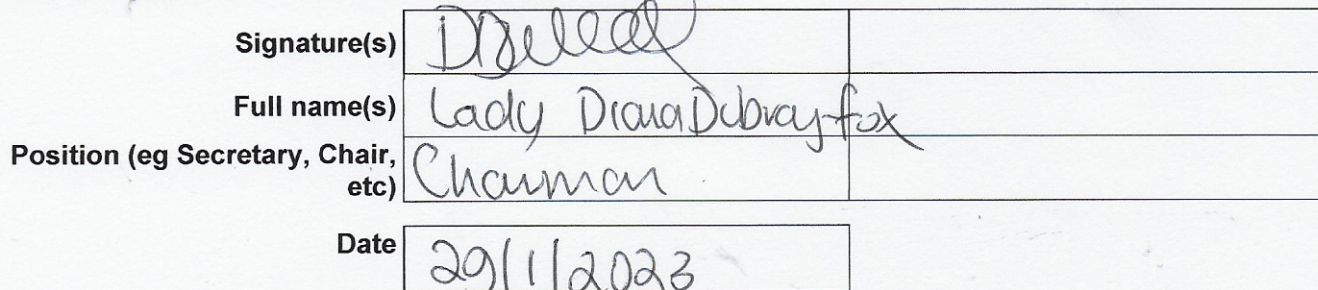 Signature(s)
Full name(s) Lady Diana Dubray-fox
Position (eg Secretary, Chair,
etc) Chairman
Date 29/1/2023